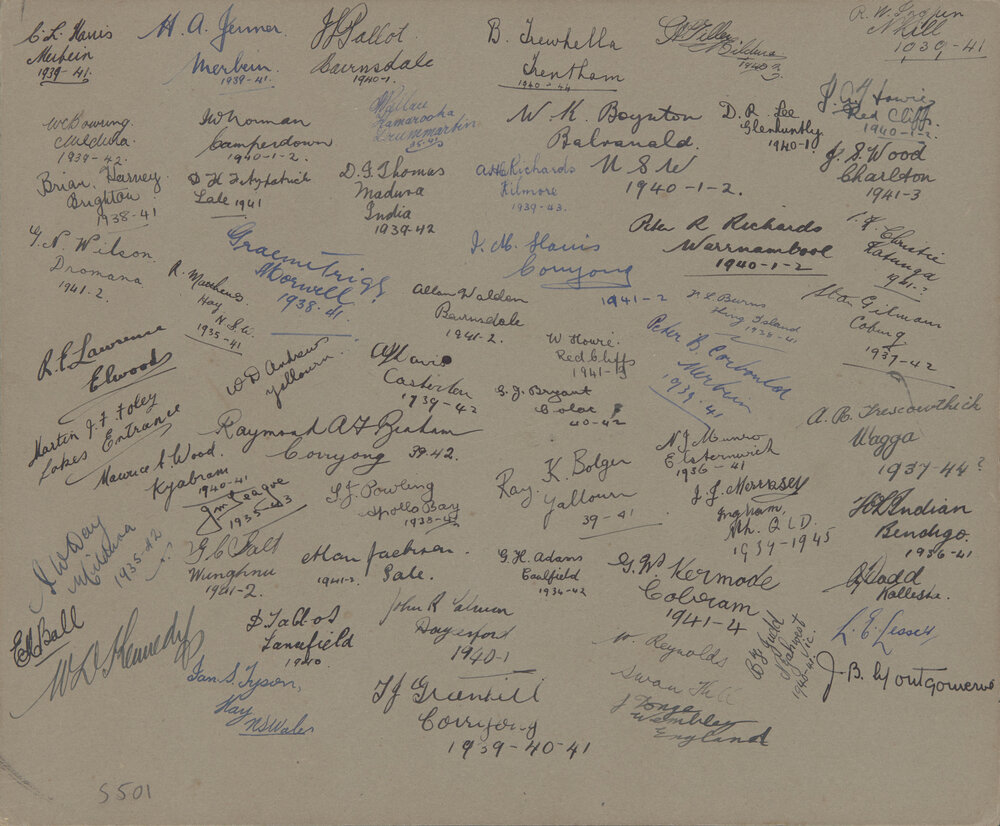 C. L. Harris
Merbein
1939-41.
H. A. Jenner
Merbein
1939-41.
Talbot
Bairnsdale
1940-1.
B. Trewhella
Trentham
1940-44
Mildura
R. W.
N'hill
1939-41
W C Bowring.
Mildura.
1939-42.
W Norman
Camperdown
1940-1-2.
Wallace
Kamarooka
Drummartin
W. K. Boynton
Balranald.
N S W
1940-1-2.
D. R. Lee
Glenhuntly
1940-1
Howie
Red Cliffs.
1940-1-2.
J. S. Wood
Charlton
1941-3
Brian Harvey
Brighton
1938-41
D H Fitzpatrick
Sale 1941
D. G. Thomas
Madura
India
1939-42
Richards
Kilmore
1939-43.
Peter R Richards
Warrnambool
1940-1-2
Christie
Katunga
1941-?
G. N. Wilson.
Dromana
1941-2.
R. Matthews
Hay
N.S.W.
1935-41
Graeme Trigg
Morwell
1938-41.
J. M. Harris
Corryong
1941-2
Allan Walden
Bairnsdale
1941-2.
L Burns
King Island
1938-41
Stan Gilmour
Coburg
1937-42
R. E. Lawrence
Elwood
W D Andrew
Yallourn.
Casterton
1939-42
W Howie.
Red Cliffs
1941-3
G. J. Bryant
Colac
40-42
Peter B. Corbould
Merbein
1939-41
Martin J. F Foley
Lakes Entrance
Maurice A. Wood.
Kyabram
1940-41
Raymond A F Benham
Corryong 39-42.
A. R. Trescowthick
Wagga
1937-44?
J M Teague
1935-43
S. J. Powling
Apollo Bay
1938-42
Ray K. Bolger
Yallourn
39-41
N J Munro
Elsternwick
1936-41
J. J. Morrasey
Ingham,
Nth. QLD.
1939-1945
Indian
Bendigo.
1936-41
W Day
Mildura
1935-42
G C Salt
Wunghnu
1941-2.
Alan Jackson.
1941-2.
Sale.
G. H. Adams
Caulfield
1934-42
G. W. Kermode
Cobram
1941-4
Dodd
E A Ball
D Talbot
Lancefield
1940
John R Salmon
Daylesford
1940-1
W. Reynolds
Swan Hill
B H Judd
Nathvest
1940-41 Vic.
L. E. Lessek
W D Kennedy
Ian S. Tyson,
Hay
NS Wales
T J Greenhill
Corryong
1939-40-41
J Tonge
Wembley
England
J. B. Montgomerie
S 501